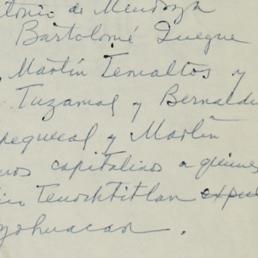 tonio de Mendoza
Bartolomé Quegue
Martín Temaltos y
Tuzamal y Bernaldi
pequecal y Martín
nos capitalinos a quienes
Tenochtitlan expul
yohuacan.